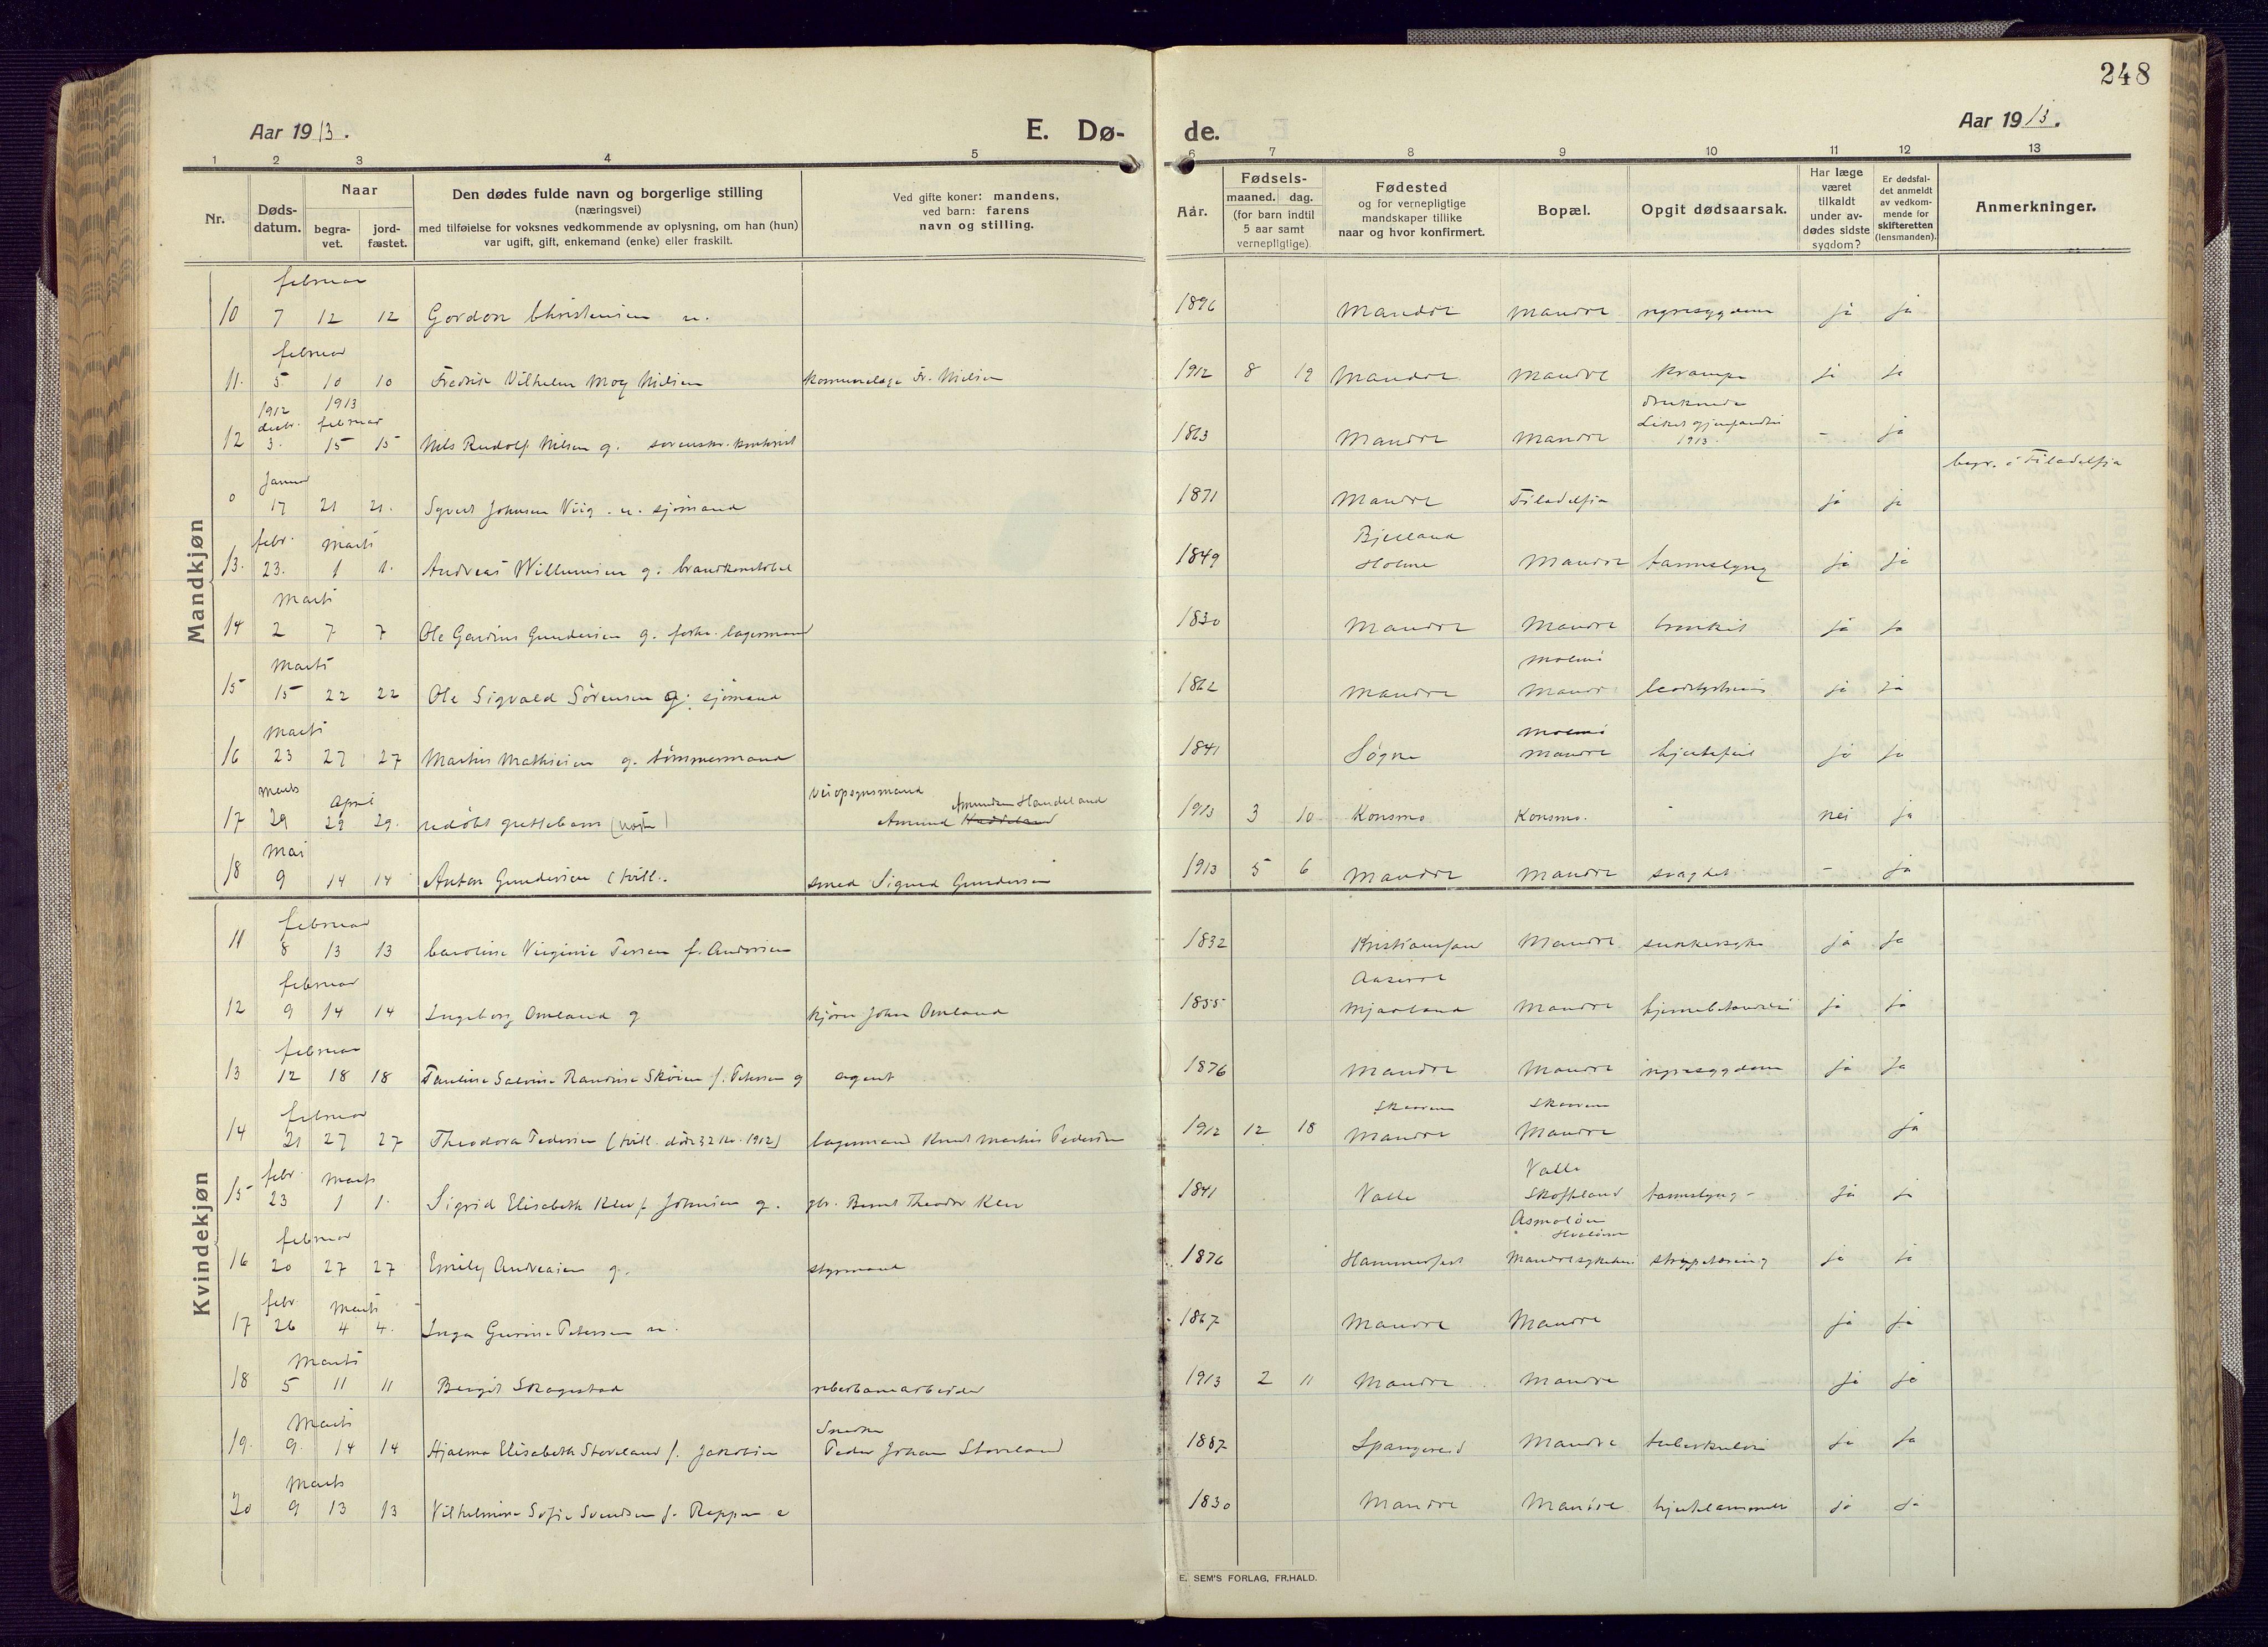 248
Aar 1913.
E. Dø-
de.
Aar 1913.
1 2 3 4 5 6 7 8 9 10 11 12 13
Nr.
Døds-
datum.
Naar
begra-
vet.
jord-
fæstet.
Den dødes fulde navn og borgerlige stilling
(næringsvei)
med tilføielse for voksnes vedkommende av oplysning, om han (hun)
var ugift, gift, enkemand (enke) eller fraskilt.
Ved gifte koner: mandens,
ved barn: farens
navn og stilling.
Aar.
Fødsels-
maaned. dag.
(for barn indtil
5 aar samt
vernepligtige)
Fødested
og for vernepligtige
mandskaper tillike
naar og hvor konfirmert.
Bopæl.
Opgit dødsaarsak.
Har læge
været
tilkaldt
under av-
dødes sidste
sygdom?
Er dødsfal-
det anmeldt
av vedkom-
mende for
skifteretten
(lensmanden).
Anmerkninger.
Mandkjøn
februar
10 7 12 12 Gordon Christensen u. 1896 Mandal Mandal nyresygdom ja ja
februar
11. 5 10 10 Fredrik Vilhelm Moy Nielsen Fr. Nielsen 1912 8 12 Mandal Mandal krampe ja ja
1912 1913
decbr. februar druknede
12 3. 15 15 Nils Rudolf Nilsen g. 1863 Mandal Mandal 1913. - ja
Januar begr. i Filadelfia
0 17 21 21. Syvert Johnsen Viig. u. sjömand 1871 Mandal Filadelfia ja ja
febr. marts Bjelland
13. 23. 1 1. Andreas Willumsen g. brandkonstabel 1849 Holme Mandal ja ja
Marts
14 2 7 7 Ole Gundersen g. forhv. lagermand 1830 Mandal Mandal bronkit ja ja
Marts
15 15 22 22 Ole Sigvald Sörensen g. sjömand 1862 Mandal Mandal ja ja
Marts
16 23 27 27 Martin Mathisen g. tömmermand 1841 Søgne Mandal hjertefeil ja ja
Marts April veiopsynsmand Amundsen Handeland
17 29 29 29. udöbt guttebarn Amund 1913 3 10 Konsmo Konsmo. nei ja
Mai
18 9 14 14 Anton Gundersen (tvill. smed Sigurd Gundersen 1913 5 6 Mandal Mandal svaghet - ja
Kvindekjøn
februar
11 8 13 13 Caroline Virginie f. Andersen 1832 Kristiansand Mandal sukkersyke ja ja
februar Aaseral
12 9 14 14 Ingeborg Omland g kjører John Omland 1855 Mjaaland Mandal ja ja
februar
13 12 18 18 Pauline f. Petersen g agent 1876 Mandal Mandal nyresygdom ja ja
februar
14 21 27 27 Theodora Pedersen (tvill. 1912) lagermand Knut Martin Pedersen 1912 12 18 Mandal Mandal ja
febr. marts Valle
15 23 1 1. Sigrid Elisabeth Klev f. Johnsen g. gbr. Bernt Theodor Klev 1841 Valle Skoftland ja ja
februar
16 20 27 27 Emily Andreasen g. styrmand 1876 Hammerfest ja ja
febr. Marts
17 26 4 4. Inga Gurine Petersen u. 1867 Mandal Mandal ja ja
Marts
18 5 11 11 Bergit Skagestad reberbanearbeider 1913 2 11 Mandal Mandal ja ja
Marts Snedker
19. 9. 14 14 Hjalma Elisabeth Stoveland f. Jakobsen Peder Johan Stoveland 1887 Spangereid Mandal tuberkulose ja ja
Marts
20 9 13 13 Vilhelmine Sofie Svendsen f. Reppen e 1830 Mandal Mandal ja ja
E. SEM'S FORLAG, FR.HALD.